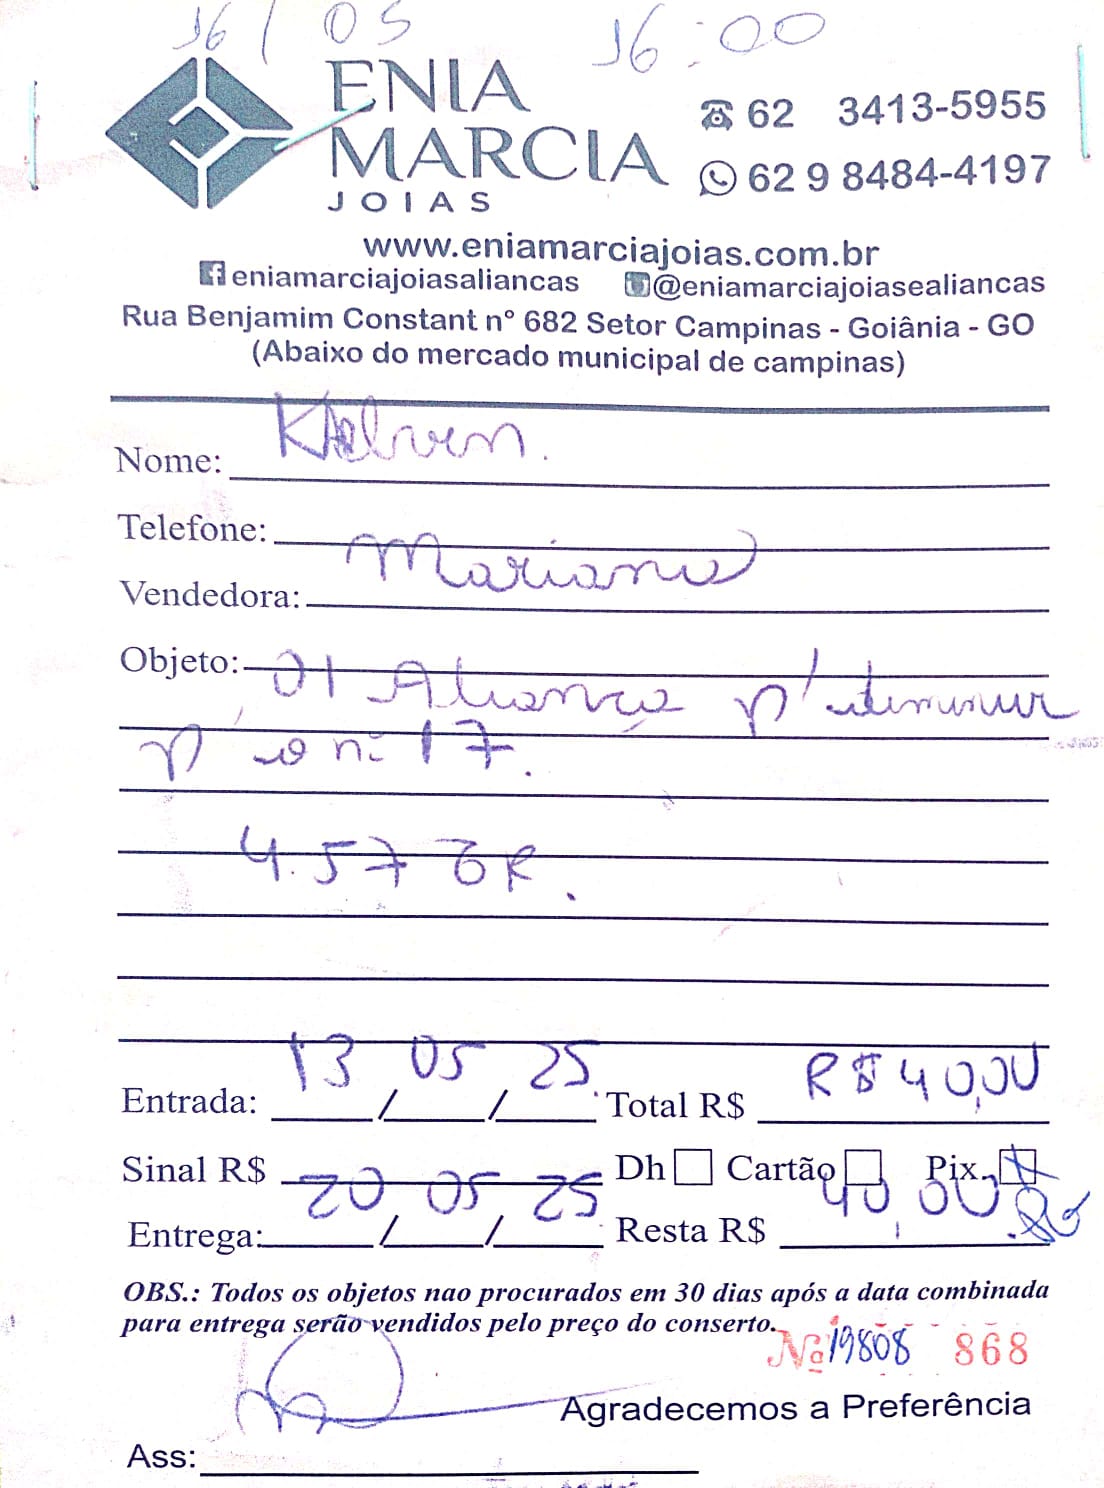 16/05 16:00
ENIA
MARCIA
JOIAS
62 3413-5955
62 9 8484-4197
www.eniamarciajoias.com.br
eniamarciajoiasaliancas @eniamarciajoiasealiancas
Rua Benjamim Constant nº 682 Setor Campinas - Goiânia - GO
(Abaixo do mercado municipal de campinas)
Nome: Khelven.
Telefone:
Vendedora: Mariana
Objeto: 01 Aliança p/ diminuir
p/ o nº 17.
4.57 GR.
Entrada: 13/05/25 Total R$ R$ 40,00
Sinal R$ Dh Cartão Pix
Entrega: 20/05/25 Resta R$ 40,00
OBS.: Todos os objetos nao procurados em 30 dias após a data combinada
para entrega serão vendidos pelo preço do conserto.
Nº 19808 868
Agradecemos a Preferência
Ass: